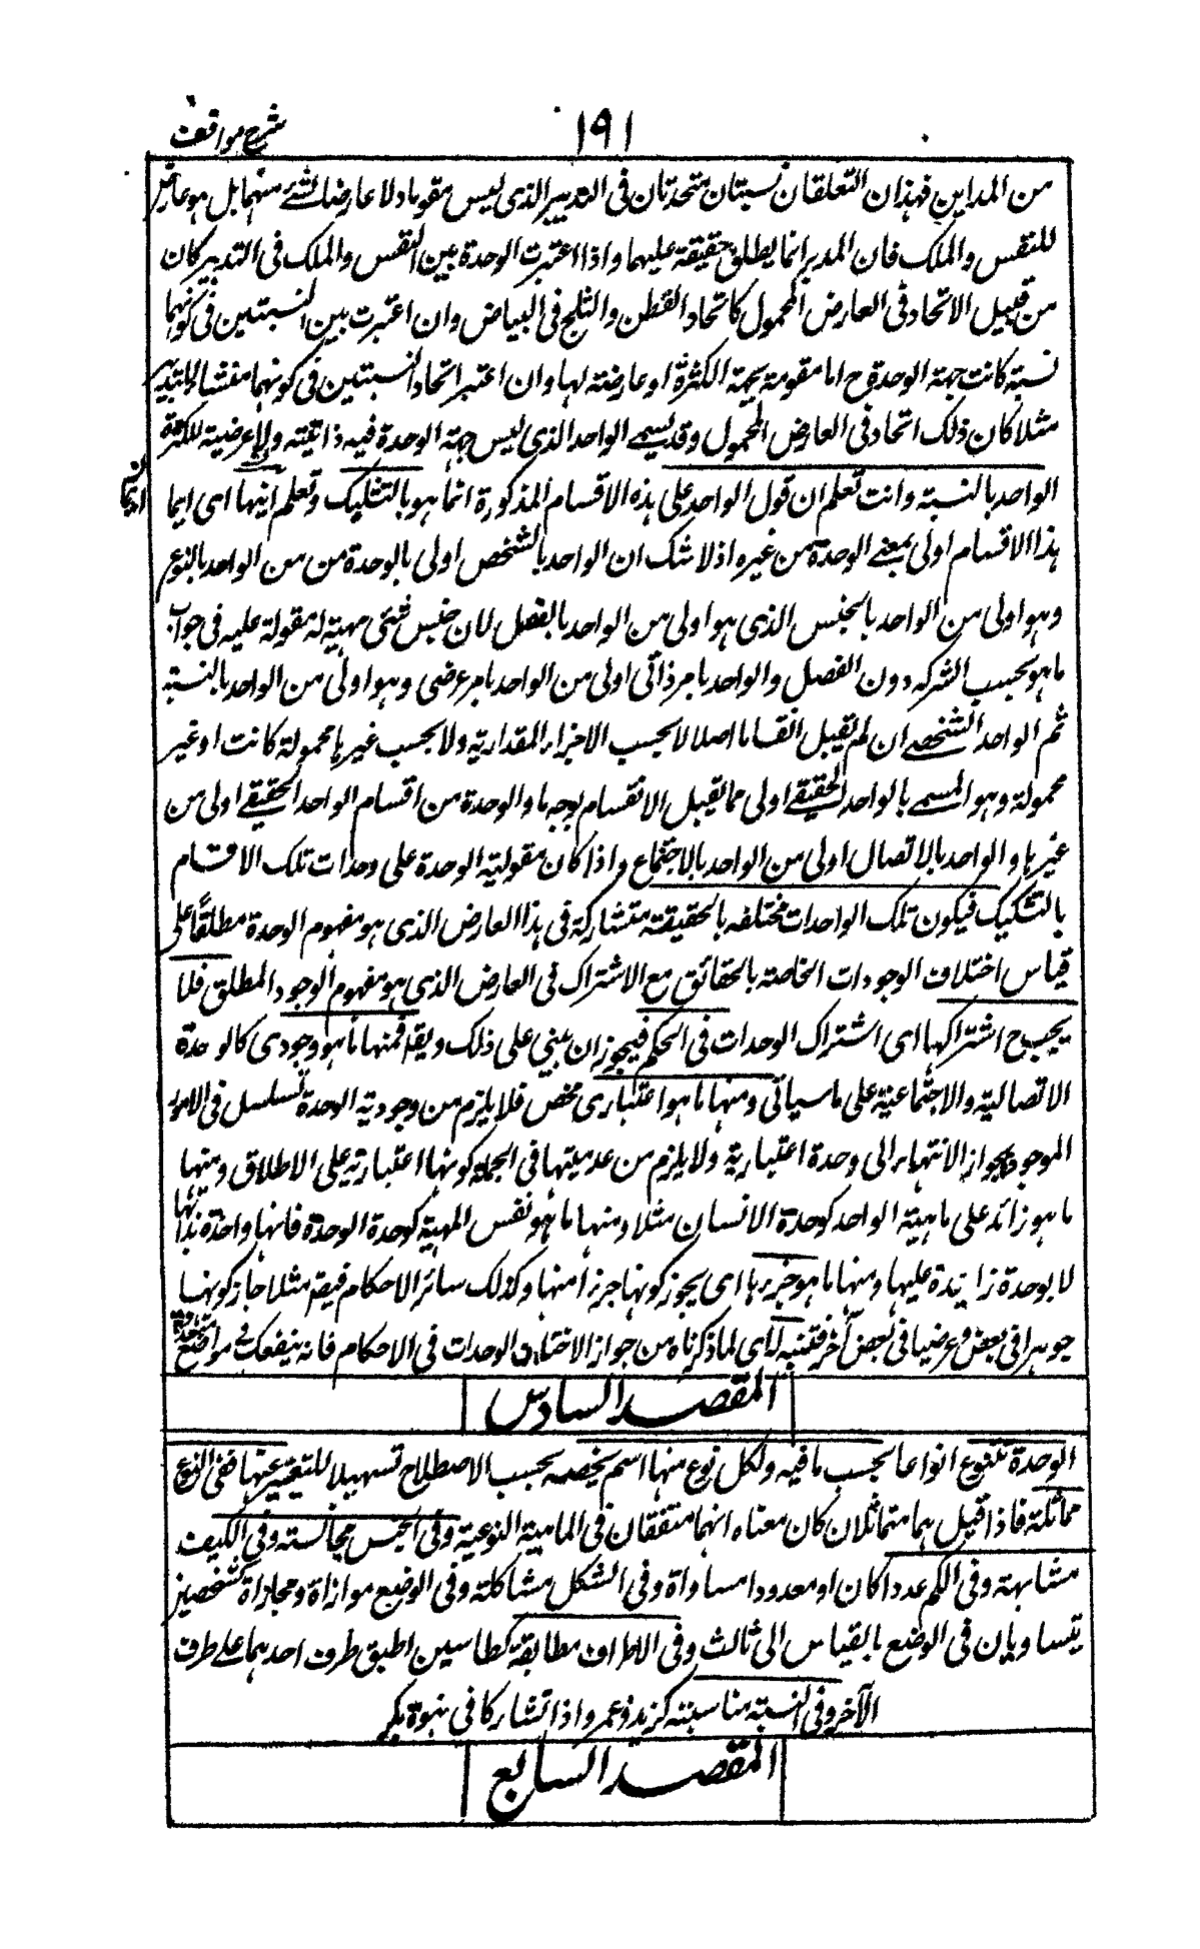 شرح مواقف
١٩١
من المداين فهذان التعلقان نسبتان متحدتان فى التدبير الذى ليس مقوما ولا عارضا لشئ منهما بل هو عارض
للنفس والملك فان المدبر انما يطلق حقيقة عليهما واذا اعتبرت الوحدة بين النفس والملك فى التدبير كان
من قبيل الاتحاد فى العارض المحمول كاتحاد القطن والثلج فى البياض وان اعتبرت بين النسبتين فى كونهما
نسبة كانت جهة الوحدة ح اما مقومة لجهة الكثرة او عارضة لها وان اعتبر اتحاد النسبتين فى كونهما منشأ للتدبير
مثلا كان ذلك اتحاد فى العارض المحمول وقد يسمى الواحد الذى ليس جهة الوحدة فيه ذاتية ولا عرضية للكثرة
الواحد بالنسبة وانت تعلم ان قول الواحد على هذه الاقسام المذكورة انما هو بالتشكيك وتعلم ايها اى ايما
هذا الاقسام اولى بمعنى الوحدة من غيره اذ لا شك ان الواحد بالشخص اولى بالوحدة من من الواحد بالنوع
وهو اولى من الواحد بالجنس الذى هو اولى من الواحد بالفصل لان جنس شئ مهية له مقولة عليه فى جواب
ما هو بحسب الشركه دون الفصل والواحد بامر ذاتى اولى من الواحد بامر عرضى وهو اولى من الواحد بالنسبة
ثم الواحد الشخصى ان لم تقبل انقساما اصلا لا بحسب الاجزاء المقدارية ولا بحسب غيرها محمولة كانت او غير
محمولة وهو المسمى بالواحد الحقيقى اولى مما يقبل الانقسام بوجه ما والوحدة من اقسام الواحد الحقيقى اولى من
غيرها والواحد بالاتصال اولى من الواحد بالاجتماع واذا كان مقولية الوحدة على وحدات تلك الاقسام
بالتشكيك فيكون تلك الواحدات مختلفه بالحقيقة متشاركة فى هذا العارض الذى هو مفهوم الوحدة مطلقًا على
قياس اختلاف الوجودات الخاصة بالحقائق مع الاشتراك فى العارض الذى هو مفهوم الوجود المطلق فلا
يجب ح اشتراكها اى اشتراك الوحدات فى الحكم فيجوز ان يبنى على ذلك ويقا فمنها ما هو وجودى كالوحدة
الاتصالية والاجتماعية على ما سياتى ومنها ما هو اعتبارى محض فلا يلزم من وجودية الوحدة تسلسل فى الامور
الموجودة لجواز الانتهاء الى وحدة اعتبارية ولا يلزم من عدميتها فى الجملة كونها اعتبارية على الاطلاق ومنها
ما هو زائد على ماهية الواحد كوحدة الانسان مثلا ومنها ما هو نفس المهية كوحدة الوحدة فانها واحدة بذاتها
لا بوحدة زايدة عليها ومنها ما هو جزءها اى يجوز كونها جزءا منها وكذلك سائر الاحكام فيصح مثلا جاز كونها
جوهرا فى بعض وعرضيا فى بعض آخر فتنبه لا اى لما ذكرناه من جواز الاختلاف الوحدات فى الاحكام فانه ينفعك فى مواضع متعددة
المقصد السادس
الوحدة تتنوع انواعا بحسب ما فيه ولكل نوع منها اسم يخصه بحسب الاصطلاح تسهيلا للتعبير عنها ففى النوع
مماثلة فاذا قيل هما متماثلان كان معناه انهما متفقان فى الماهية النوعية وفى الجنس مجانسة وفى الكيف
مشابهة وفى الكم عددا كان او معدودا مساواة وفى الشكل مشاكلة وفى الوضع موازاة ومحاذاة كشخصين
يتساويان فى الوضع بالقياس الى ثالث وفى الاطراف مطابقة كطاسين اطبق طرف احدهما على طرف
الآخر وفى النسبة مناسبة كزيد وعمرو اذا تشاركا فى بنوة بكر
المقصد السابع